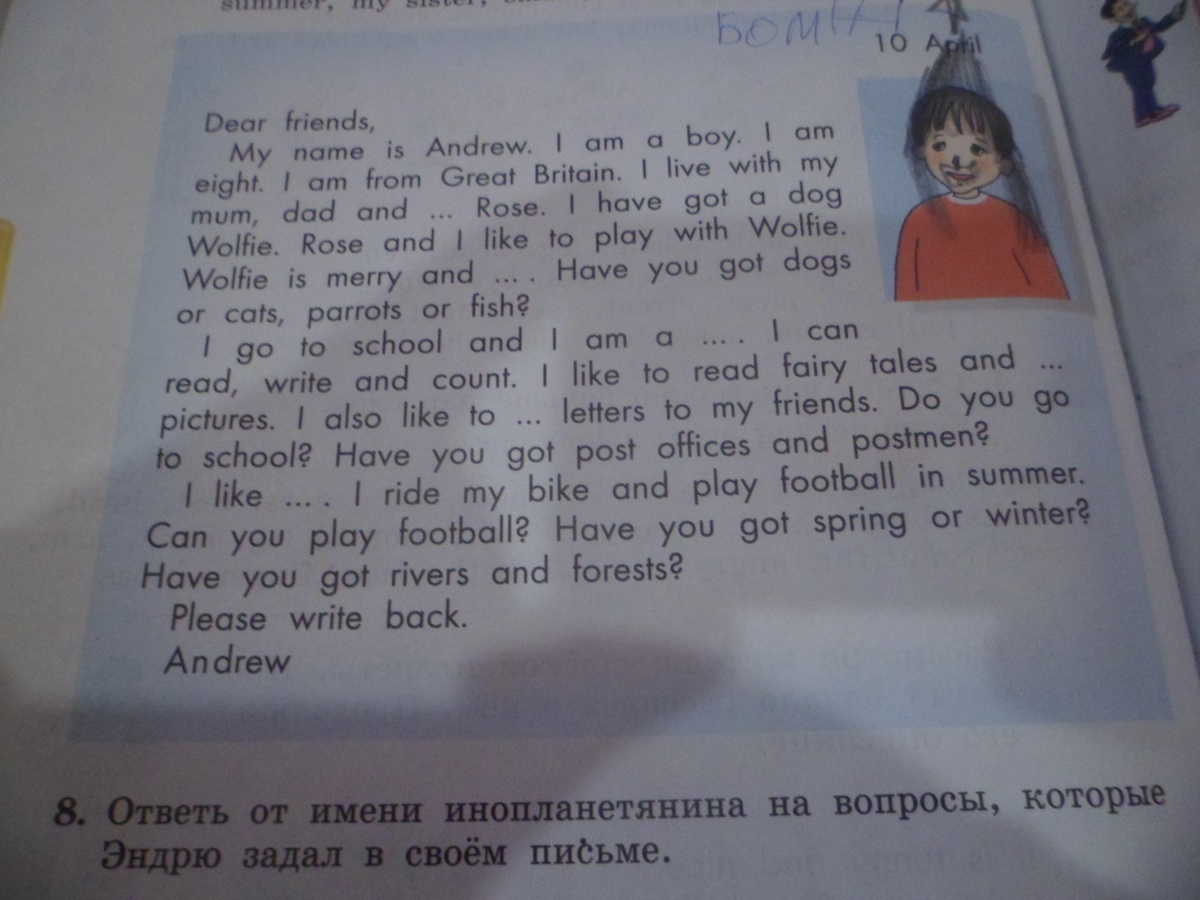 summer, my sister,
БОМЖ
10 April
Dear friends,
My name is Andrew. I am a boy. I am
eight. I am from Great Britain. I live with my
mum, dad and ... Rose. I have got a dog
Wolfie. Rose and I like to play with Wolfie.
Wolfie is merry and ... . Have you got dogs
or cats, parrots or fish?
I go to school and I am a ... . I can
read, write and count. I like to read fairy tales and ...
pictures. I also like to ... letters to my friends. Do you go
to school? Have you got post offices and postmen?
I like ... . I ride my bike and play football in summer.
Can you play football? Have you got spring or winter?
Have you got rivers and forests?
Please write back.
Andrew
8. Ответь от имени инопланетянина на вопросы, которые
Эндрю задал в своём письме.